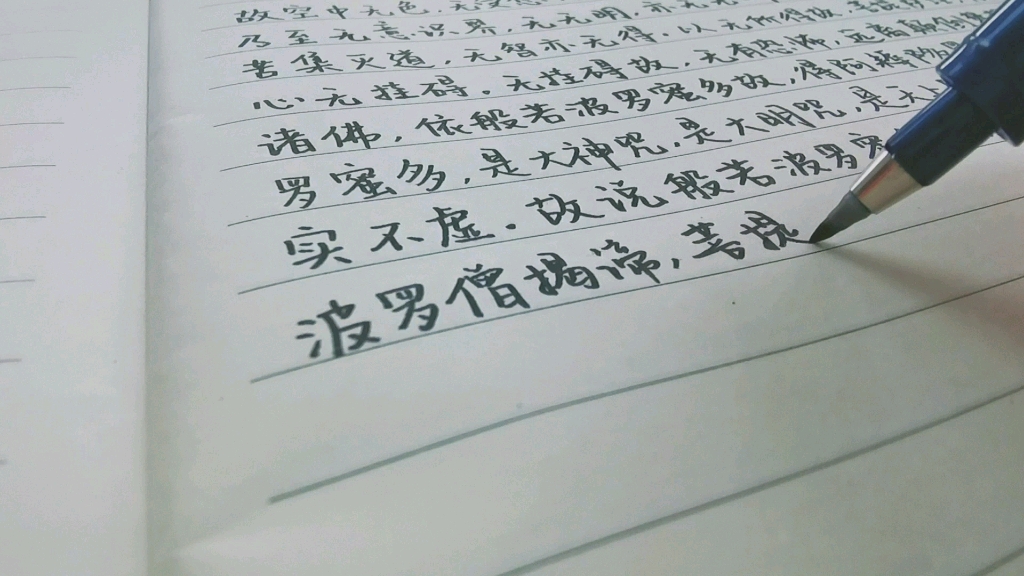 故空中无色，无受想
乃至无意识界，无无明，亦无无
苦集灭道，无智亦无得。以无所得故
心无挂碍。无挂碍故，无有恐怖，远离颠倒
诸佛，依般若波罗蜜多故，得阿耨
罗蜜多，是大神咒，是大明咒，是无上
实不虚。故说般若波罗蜜
波罗僧揭谛，菩提